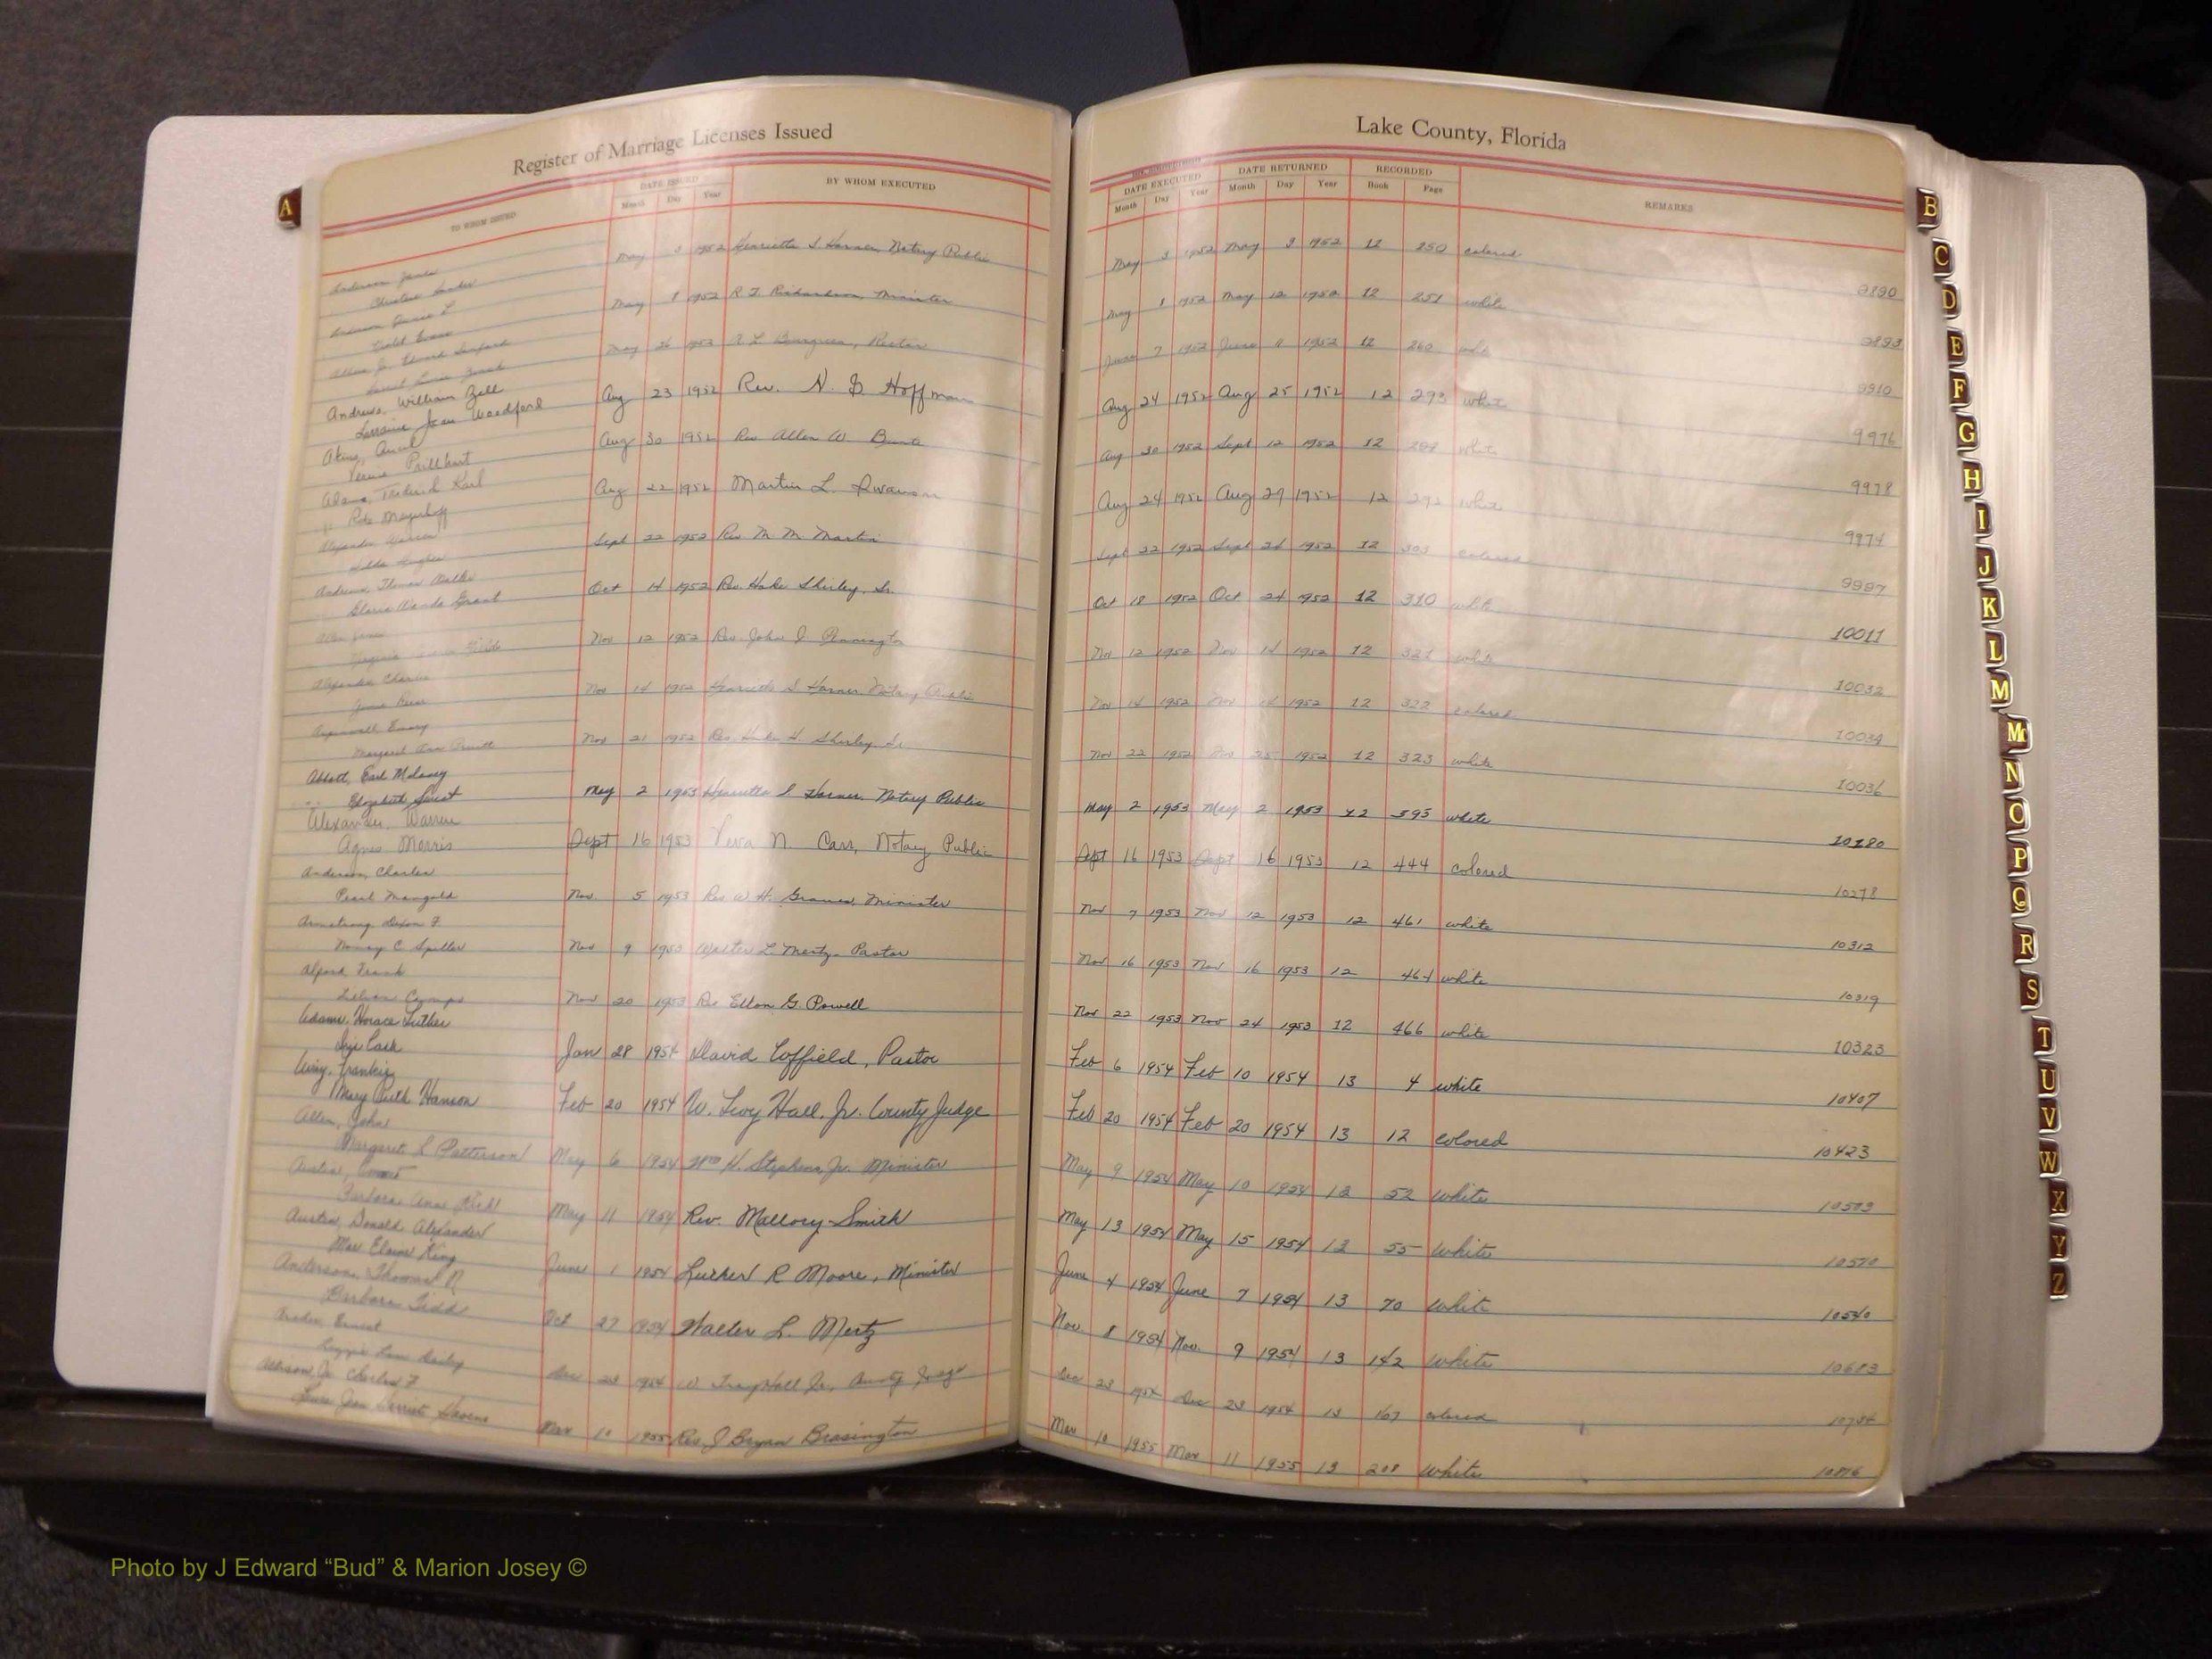 Register of Marriage Licenses Issued
Lake County, Florida
TO WHOM ISSUED
DATE ISSUED
Month Day Year
BY WHOM EXECUTED
DATE EXECUTED
Month Day Year
DATE RETURNED
Month Day Year
RECORDED
Book Page
REMARKS
Anderson James
May 3 1952 Henrietta S Harner, Notary Public May 3 1952 May 3 1952 12 250 colored 9890
Violet Evans
May 8 1952 R Richardson, Minister May 8 1952 May 12 1952 12 251 white 9893
May 26 1952 Rector June 7 1952 June 11 1952 12 260 9910
Andrews, William Zell
Lorraine Joan Woodford
Aug 23 1952 Rev. N. G Hoffman Aug 24 1952 Aug 25 1952 12 293 white 9976
Akins,
Aug 30 1952 Rev Allen W Aug 30 1952 Sept 12 1952 12 white 9978
Adams, Frederick Karl
Rose Mayerhoff
Aug 22 1952 Martin L. Swanson Aug 24 1952 Aug 29 1952 12 292 white 9974
Alexander Warren
Sept 22 1952 Rev M M Martin Sept 22 1952 Sept 26 1952 12 303 colored 9997
Andrews, Thomas Walter
Gloria Wanda Grant
Oct 14 1952 Rev. Hake Shirley, Sr. Oct 18 1952 Oct 24 1952 12 310 white 10011
Allen James
Virginia
Nov 12 1952 Rev. John J Pennington Nov 12 1952 Nov 14 1952 12 321 white 10032
Alexander Charlie
Nov 14 1952 Henrietta S Harner Notary Public Nov 14 1952 Nov 14 1952 12 322 colored 10034
Aspinwall, Emory
Margaret Ann Pruitt
Nov 21 1952 Rev. Hake H Shirley, Sr. Nov 22 1952 Nov 25 1952 12 323 white 10036
Abbott, Earl Maloney
" Elizabeth Sweat
May 2 1953 Henrietta S. Harner, Notary Public May 2 1953 May 2 1953 12 395 white 10180
Alexander, Warren
Agnes Morris
Sept 16 1953 Vera N. Carr, Notary Public Sept 16 1953 Sept 16 1953 12 444 colored 10278
Anderson, Charles
Pearl Mangold
Nov 5 1953 Rev W. H. Graves, Minister Nov 7 1953 Nov 12 1953 12 461 white 10312
Armstrong Dixon F.
Nancy C Spiller
Nov 9 1953 Walter L Mertz, Pastor Nov 16 1953 Nov 16 1953 12 464 white 10319
Alford Frank
Nov 20 1953 Rev Elton G. Powell Nov 22 1953 Nov 24 1953 12 466 white 10323
Adams, Horace Luther
Cash
Jan 28 1954 David Coffield, Pastor Feb 6 1954 Feb 10 1954 13 4 white 10407
Frankie
Mary Ruth Hanson
Feb 20 1954 W. Troy Hall, Jr. County Judge Feb 20 1954 Feb 20 1954 13 12 colored 10423
Allen, John
Margaret L Patterson
May 6 1954 Wm H. Stephens, Jr. Minister May 9 1954 May 10 1954 13 52 white 10503
Austin,
Barbara Ann
May 11 1954 Rev. Mallory Smith May 13 1954 May 15 1954 13 55 white 10510
Austin, Donald Alexander
Mae Elaine King
June 1 1954 Luther R Moore, Minister June 4 1954 June 7 1954 13 70 white 10540
Anderson, Thomas N
Barbara Tidd
Oct 27 1954 Walter L. Mertz Nov. 8 1954 Nov. 9 1954 13 142 white 10683
Ernest
Dec 23 1954 W Troy Hall Jr, County Judge Dec 23 1954 Dec 23 1954 13 167 colored 10734
Jr. Charles F
Mar 10 1955 Rev J Bryan Brasington Mar 10 1955 Mar 11 1955 13 208 white 10816
A
B
C
D
E
F
G
H
I
J
K
L
M
Mc
N
O
P
Q
R
S
T
U
V
W
X
Y
Z
Photo by J Edward “Bud” & Marion Josey ©